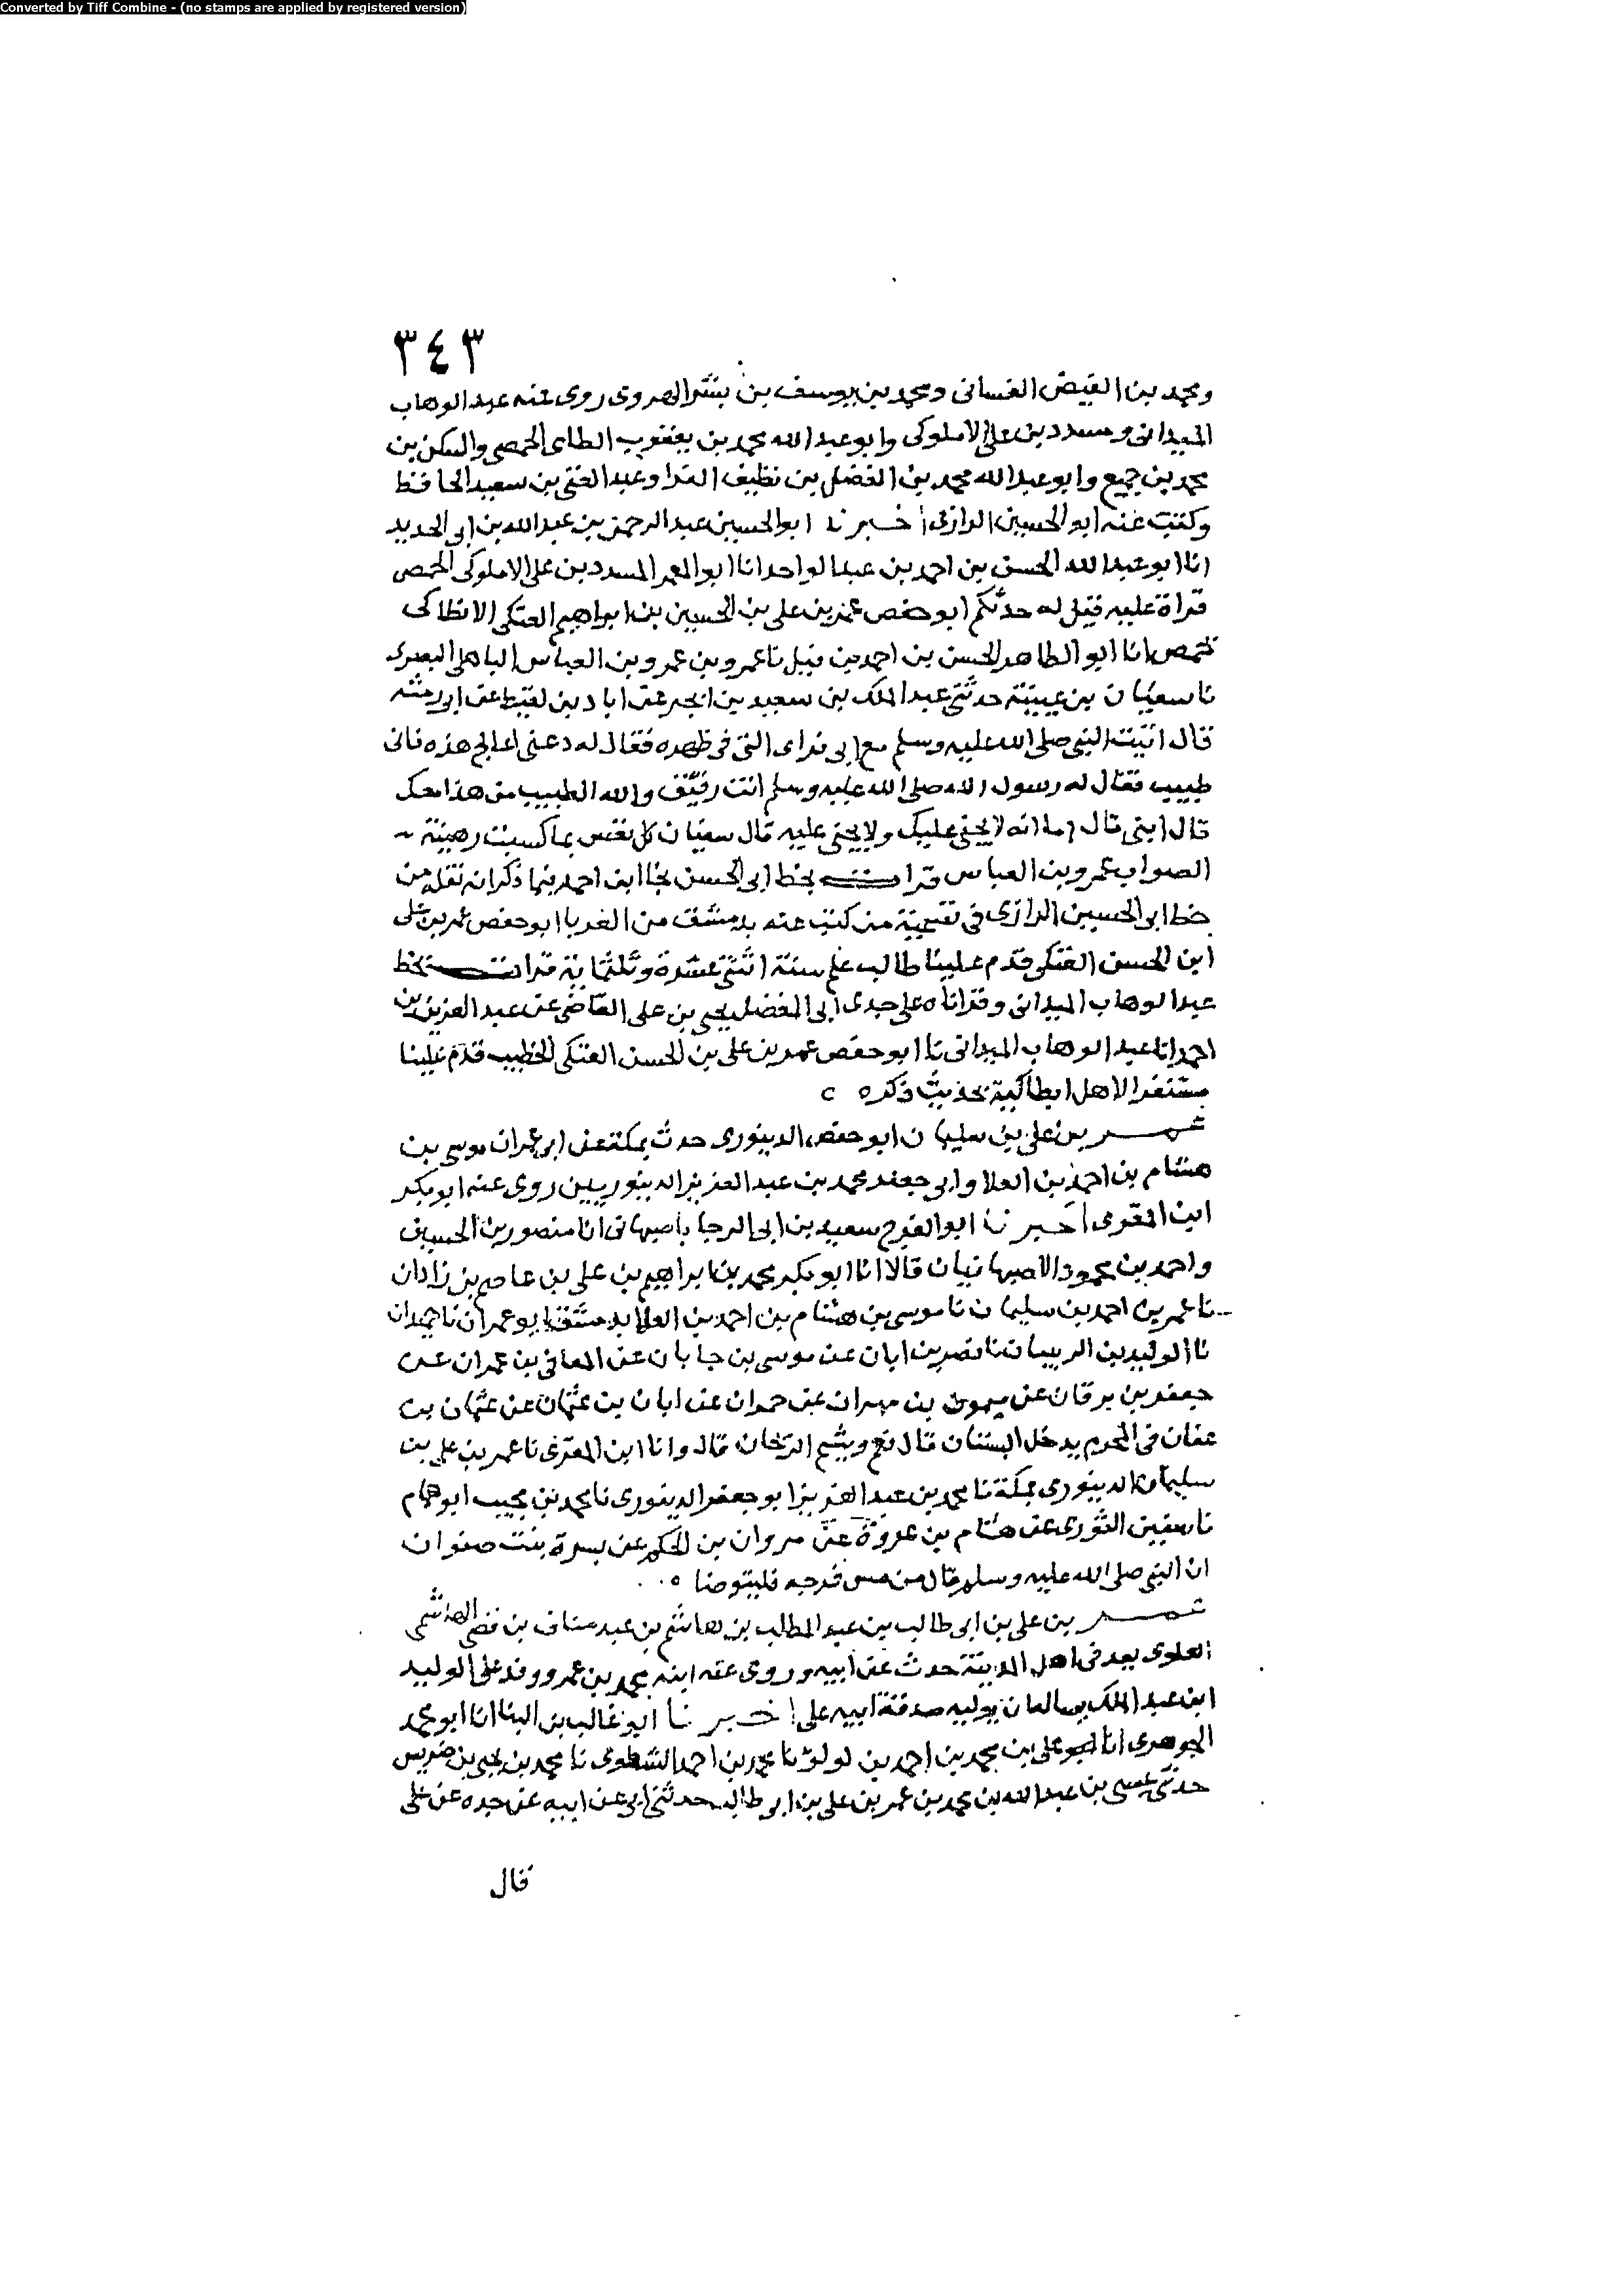 Converted by Tiff Combine - (no stamps are applied by registered version)
٣٤٣
ومحمد بن الفيض الغسانى ومحمد بن يوسف بن بشر الهروى روى عنه عبد الوهاب
الميدانى ومسدد بن على الاملوكى وابو عبد الله محمد بن يعقوب الطاى الحمصى والسكن بن
محمد بن جميع وابو عبد الله محمد بن الفضل بن نظيف الفرا وعبد الغنى بن سعيد الحافظ
وكتب عنه ابو الحسين الرازى اخبرنا ابو الحسين عبد الرحمن بن عبد الله بن ابى الحديد
انا ابو عبد الله الحسن بن احمد بن عبد الواحد انا ابو المعمر المسدد بن على الاملوكى الحمصى
قراة عليه فقيل له حدثكم ابو حفص عمر بن على بن الحسين بن ابراهيم العتكى الانطاكى
بحمص انا ابو الطاهر الحسن بن احمد بن فيل نا عمرو بن عمرو بن العباس الباهلى البصرى
نا سفيان بن عيينة حدثنى عبد الملك بن سعيد بن ابجر عن اياد بن لقيط عن ابى رمثه
قال اتيت النبى صلى الله عليه وسلم مع ابى فراى التى فى ظهره فقال له دعنى اعالج هذه فانى
طبيب فقال له رسول الله صلى الله عليه وسلم انت رفيق والله الطبيب من هذا معك
قال ابنى قال اما انه لا يجنى عليك ولا يجنى عليه قال سفيان كل نفس بما كسبت رهينة
الصواب عمرو بن العباس قرات بخط ابى الحسن نجا ابن احمد فيما ذكر انه نقله من
خط ابى الحسين الرازى فى تسمية من كتب عنه بدمشق من الغربا ابو حفص عمر بن على
ابن الحسن العتكى قدم علينا طالب علم سنة اثنتى عشرة وثلثماية قرات بخط
عبد الوهاب الميدانى وقراناه على جدى ابى المفضل يحيى بن على القاضى عن عبد العزيز بن
احمد انا عبد الوهاب الميدانى نا ابو حفص عمر بن على بن الحسن العتكى الخطيب قدم علينا
مستنفرا لاهل انطاكية بحديث ذكره
عمر بن على بن سليمان ابو حفص الدينورى حدث بمكة عن ابى عمران موسى بن
هشام بن احمد بن العلا وابى جعفر محمد بن عبد العزيز الدينوريين روى عنه ابو بكر
ابن المقرى اخبرنا ابو الفرج سعيد بن ابى الرجا باصبهان انا منصور بن الحسين
واحمد بن محمود الاصبهانيان قالا انا ابو بكر محمد بن ابراهيم بن على بن عاصم بن زاذان
نا عمر بن احمد بن سليمان نا موسى بن هشام بن احمد بن العلا بدمشق ابو عمران
نا الوليد بن الريان نا نصر بن ابان عن موسى بن جابان عن المعافى بن عمران عن
جعفر بن برقان عن ميمون بن مهران عن حمران عن ابان بن عثمان عن عثمان بن
عفان فى المحرم يدخل البستان قال نعم ويشم الريحان قال وانا ابن المقرى نا عمر بن على بن
سليمان الدينورى بمكة نا محمد بن عبد العزيز ابو جعفر الدينورى نا محمد بن مجيب ابو همام
نا سفين الثورى عن هشام بن عروة عن مروان بن الحكم عن بسرة بنت صفوان
ان النبى صلى الله عليه وسلم قال من مس فرجه فليتوضا
عمر بن على بن ابى طالب بن عبد المطلب بن هاشم بن عبد مناف بن قصى الهاشمى
العلوى يعد فى اهل المدينة حدث عن ابيه وروى عنه ابنه محمد بن عمر ووفد على الوليد
ابن عبد الملك يساله ان يوليه صدقة ابيه على اخبرنا ابو غالب بن البنا انا ابو محمد
الجوهرى انا على بن محمد بن احمد بن لولو نا محمد بن احمد الشطوى نا محمد بن يحيى بن ضريس
حدثنى عيسى بن عبد الله بن محمد بن عمر بن على بن ابى طالب حدثنى ابى عن ابيه عن جده عن على
قال